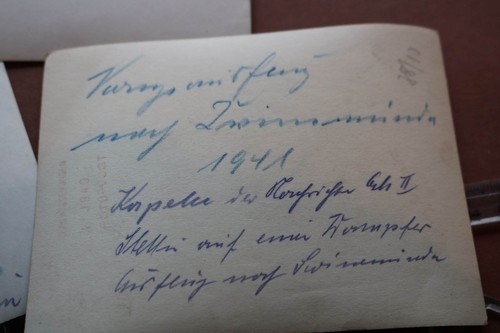 nach Swinemünde
1941
Kapelle der Nachrichten Abt II
Stettin auf einer Dampfer
Ausflug nach Swinemünde
28/10